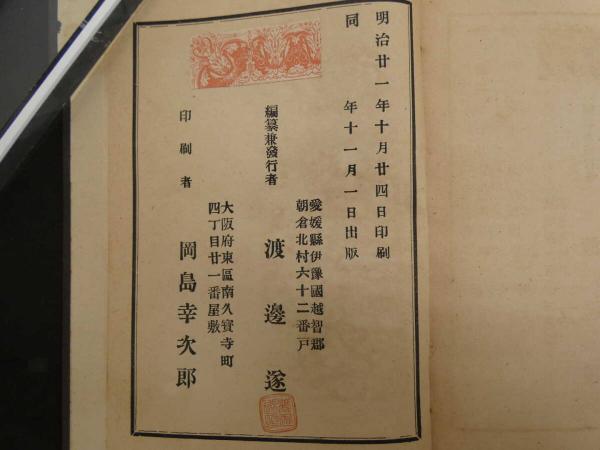 明治廿一年十月廿四日印刷
同年十一月一日出版
愛媛縣伊豫國越智郡
朝倉北村六十二番戸
編纂兼發行者
渡邊遂
大阪府東區南久寳寺町
四丁目廿一番屋敷
印刷者
岡島幸次郎